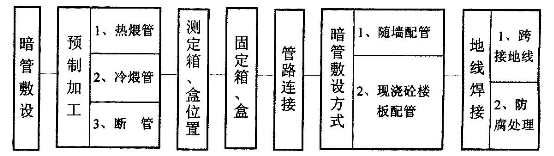 暗管敷设
预制加工
1、热煨管
2、冷煨管
3、断 管
测定箱、盒位置
固定箱、盒
管路连接
暗管敷设方式
1、随墙配管
2、现浇砼楼
板配管
地线焊接
1、跨
接地线
2、防
腐处理